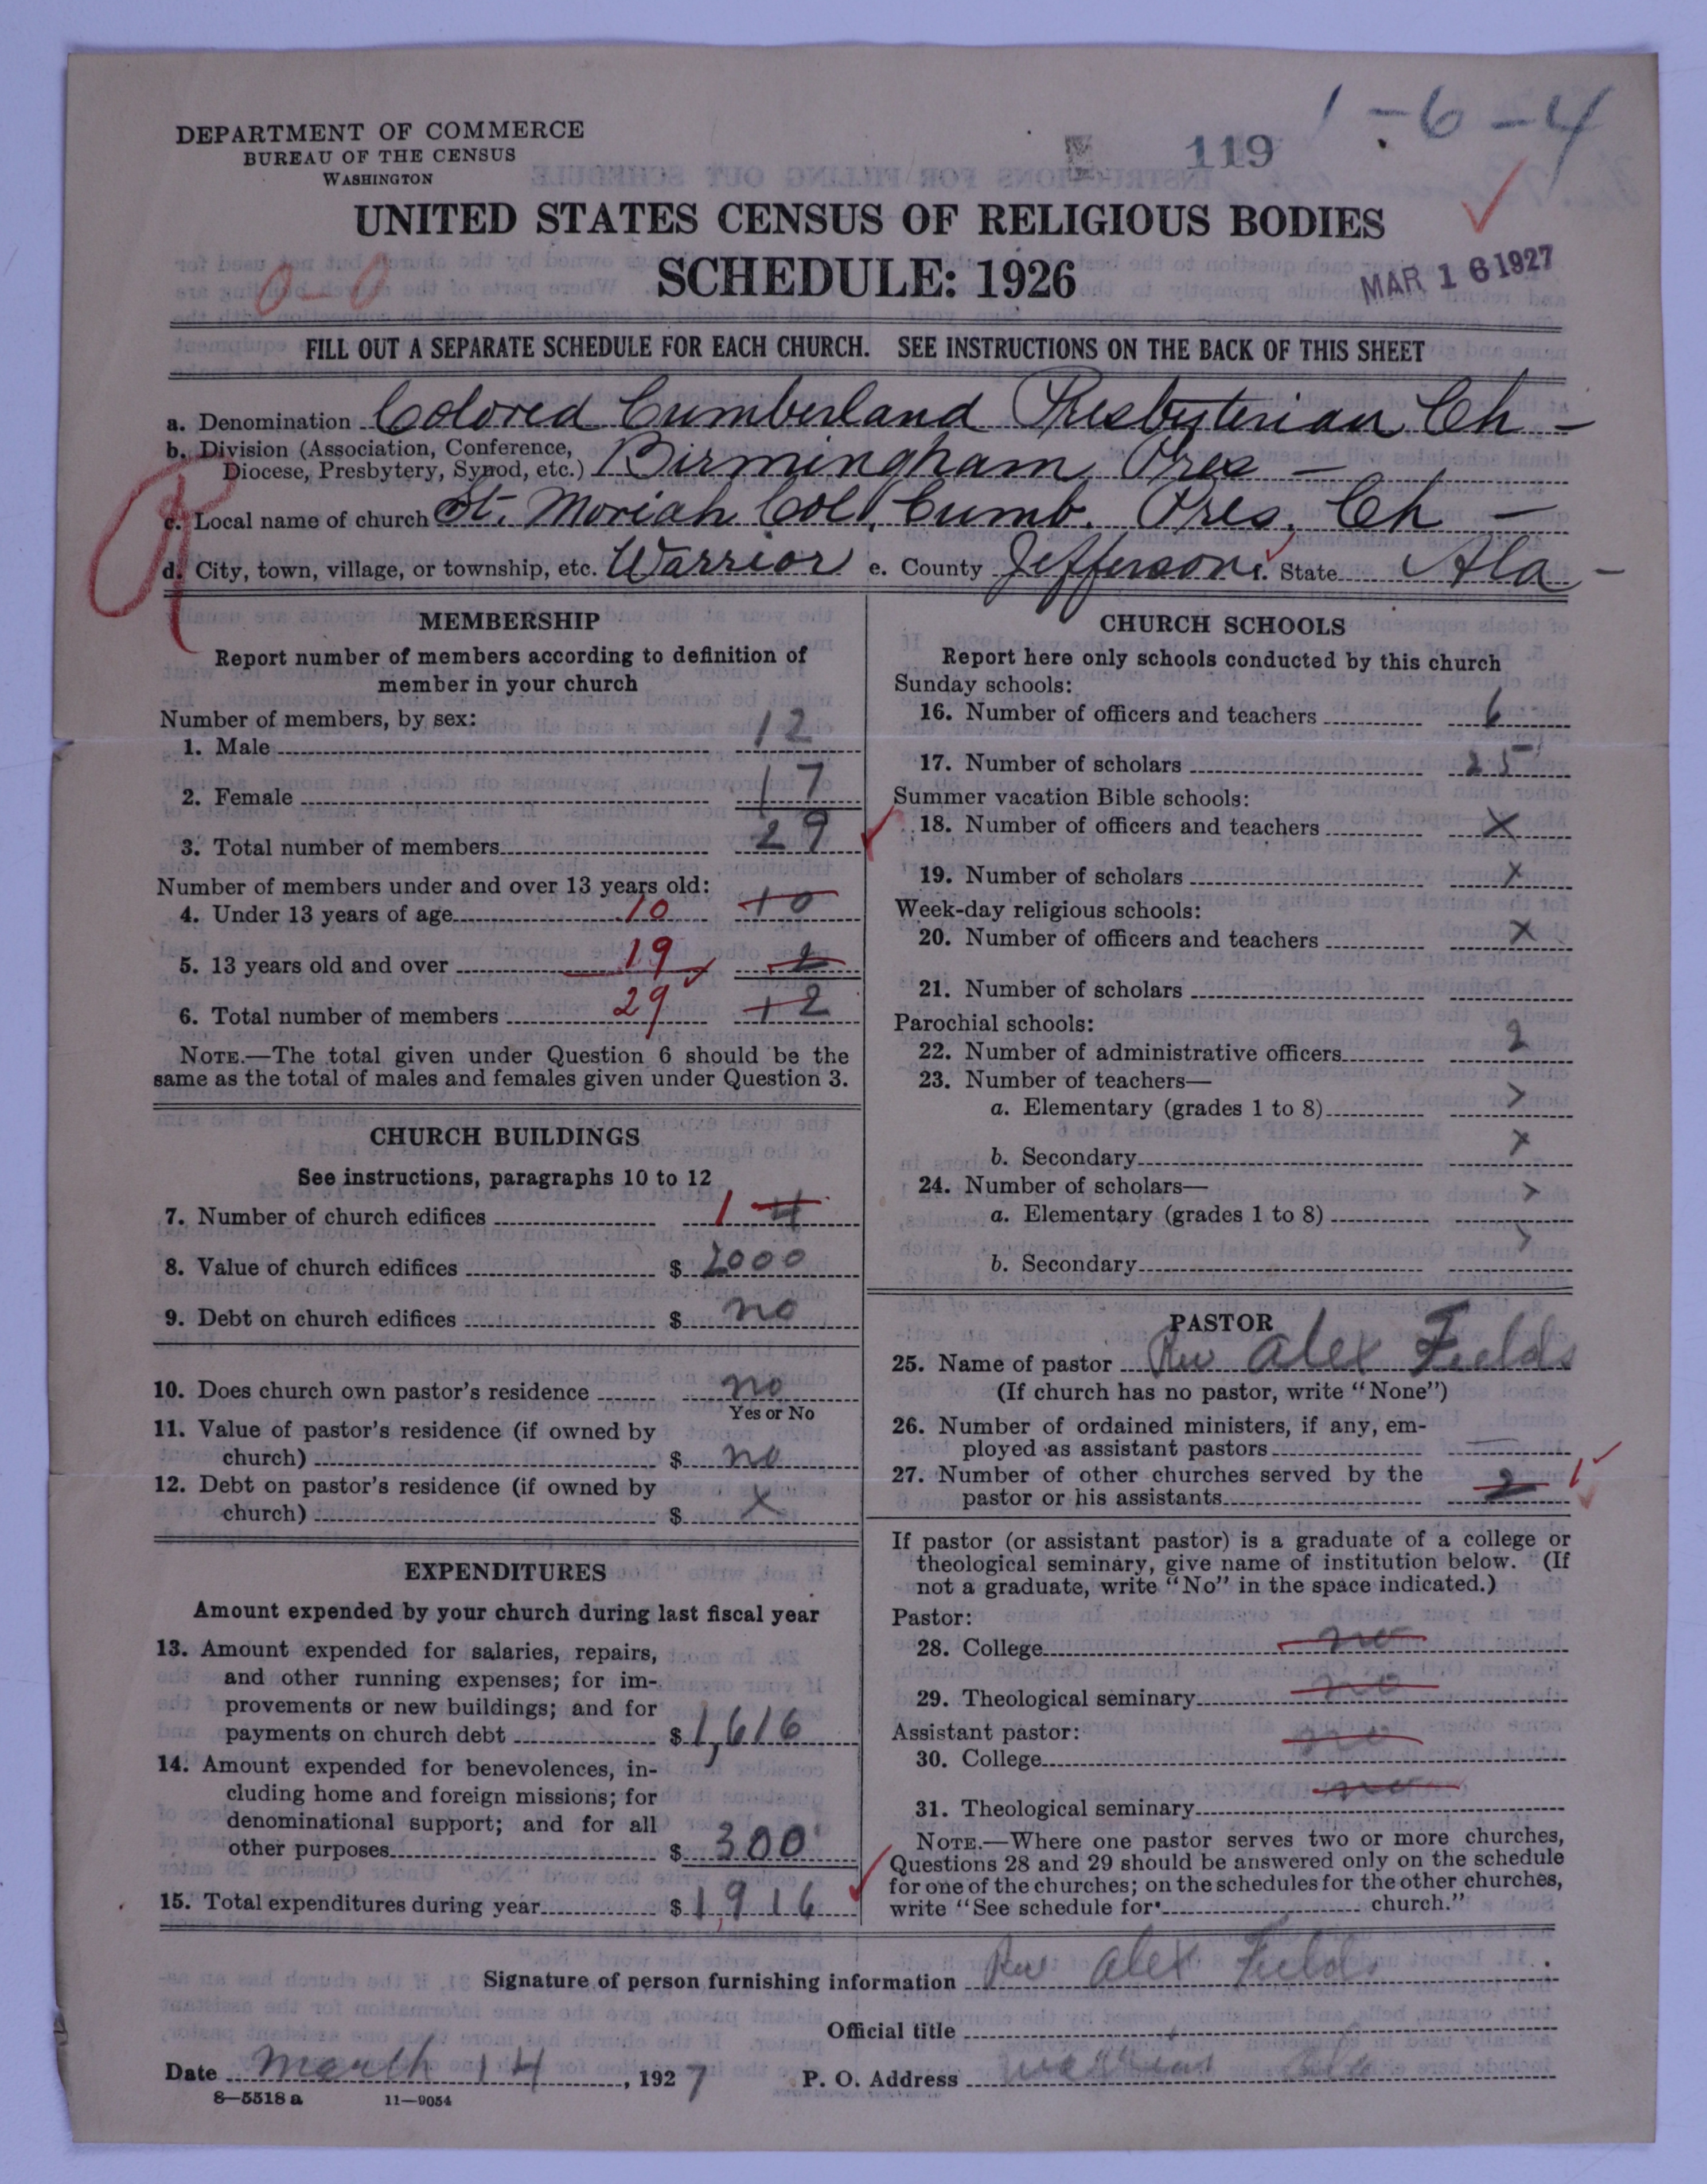 1-6-4
DEPARTMENT OF COMMERCE
BUREAU OF THE CENSUS
WASHINGTON
119
UNITED STATES CENSUS OF RELIGIOUS BODIES
SCHEDULE: 1926
0-0
MAR 16 1927
FILL OUT A SEPARATE SCHEDULE FOR EACH CHURCH. SEE INSTRUCTIONS ON THE BACK OF THIS SHEET
a. Denomination Colored Cumberland Presbyterian Ch -
b. Division (Association, Conference,
Diocese, Presbytery, Synod, etc.) Birmingham Pres -
R
c. Local name of church St. Moriah Col. Cumb. Pres. Ch -
d. City, town, village, or township, etc. Warrior e. County Jefferson f. State Ala -
MEMBERSHIP
Report number of members according to definition of
member in your church
Number of members, by sex:
1. Male 12
2. Female 17
3. Total number of members 29
Number of members under and over 13 years old:
4. Under 13 years of age 10 10
5. 13 years old and over 19 2
6. Total number of members 29 12
NOTE.—The total given under Question 6 should be the
same as the total of males and females given under Question 3.
CHURCH BUILDINGS
See instructions, paragraphs 10 to 12
7. Number of church edifices 1 4
8. Value of church edifices $ 2000
9. Debt on church edifices $ no
10. Does church own pastor's residence no
Yes or No
11. Value of pastor's residence (if owned by
church) $ no
12. Debt on pastor's residence (if owned by
church) $ X
EXPENDITURES
Amount expended by your church during last fiscal year
13. Amount expended for salaries, repairs,
and other running expenses; for im-
provements or new buildings; and for
payments on church debt $ 1,616
14. Amount expended for benevolences, in-
cluding home and foreign missions; for
denominational support; and for all
other purposes $ 300
15. Total expenditures during year $ 1,916
CHURCH SCHOOLS
Report here only schools conducted by this church
Sunday schools:
16. Number of officers and teachers 6
17. Number of scholars 25
Summer vacation Bible schools:
18. Number of officers and teachers X
19. Number of scholars X
Week-day religious schools:
20. Number of officers and teachers X
21. Number of scholars
Parochial schools:
22. Number of administrative officers 2
23. Number of teachers—
a. Elementary (grades 1 to 8) X
b. Secondary X
24. Number of scholars—
a. Elementary (grades 1 to 8) X
b. Secondary X
PASTOR
25. Name of pastor Rev Alex Fields
(If church has no pastor, write "None")
26. Number of ordained ministers, if any, em-
ployed as assistant pastors —
27. Number of other churches served by the
pastor or his assistants 2 1
If pastor (or assistant pastor) is a graduate of a college or
theological seminary, give name of institution below. (If
not a graduate, write "No" in the space indicated.)
Pastor:
28. College no
29. Theological seminary no
Assistant pastor:
30. College no
31. Theological seminary no
NOTE.—Where one pastor serves two or more churches,
Questions 28 and 29 should be answered only on the schedule
for one of the churches; on the schedules for the other churches,
write "See schedule for church."
Signature of person furnishing information Rev Alex Fields
Official title
Date March 14, 1927 P. O. Address Ala
8—5518 a 11—9054